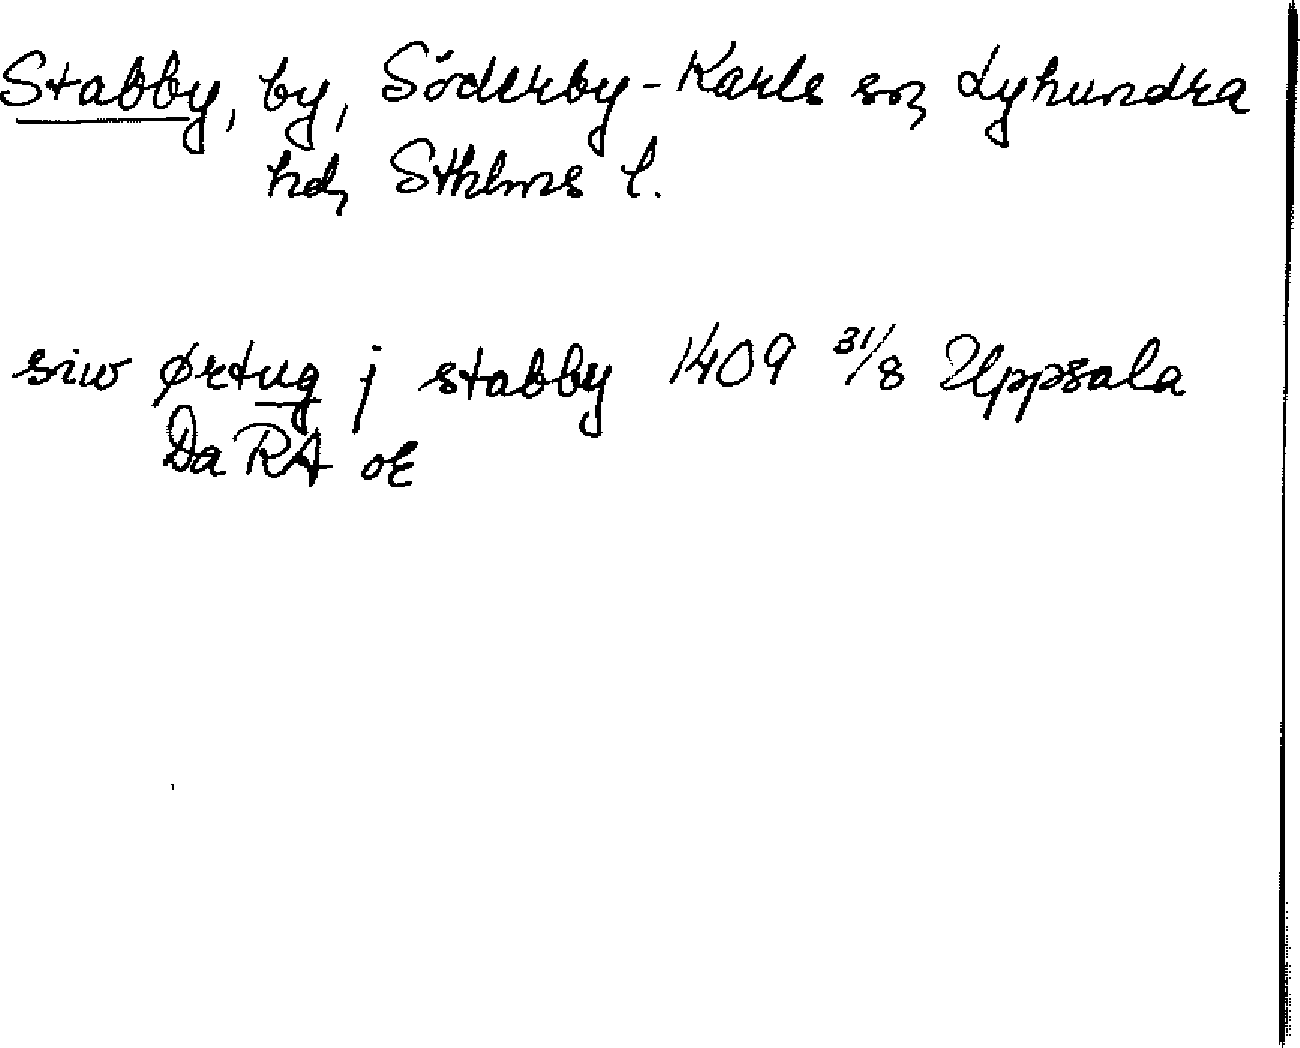 Stabby, by, Söderby-Karls sn, Lyhundra
hd, Sthlms l.
siw ørtug j stabby 1409 31/8 Uppsala
Da RA oE